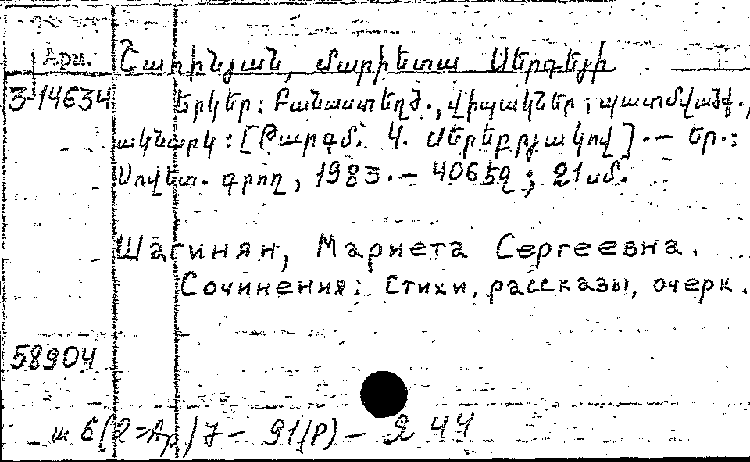 Арм.
Շահինյան, Մարիետա Սերգեյի
3-14634 Երկեր: Բանաստեղծ., վիպակներ, պատմվածք.,
ակնարկ: [Թարգմ. Վ. Մերեքրյակով].— Եր.:
Սովետ. գրող, 1983.— 406 էջ; 21 սմ.
Шагинян, Мариета Сергеевна.
Сочинения: Стихи, рассказы, очерк.
58904
84(2=Ар)7 — 91(Р) — 2 44